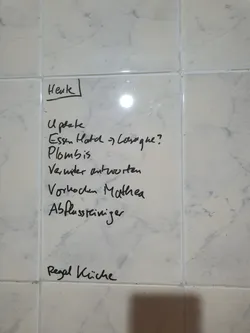 Heute
Update
Essen Hotel → Lasagne?
Plombis
Vermieter antworten
Vorkochen Mathea
Abflussreiniger
Regal Küche